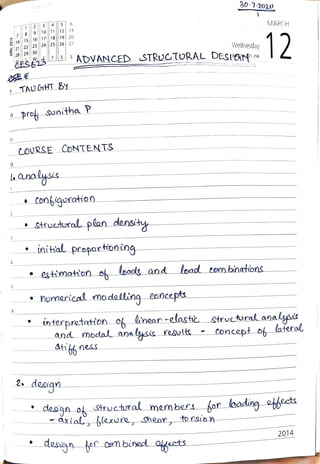 30-7-2020
1
MARCH
Wednesday
12
APRIL 2014
1 2 3 4 5 6
7 8 9 10 11 12 13
14 15 16 17 18 19 20
21 22 23 24 25 26 27
28 29 30
CES623
ADVANCED STRUCTURAL DESIGN
TAUGHT BY
prof sunitha P
COURSE CONTENTS
1. analysis
• configuration
• structural plan density
• initial proportioning
• estimation of loads and load combinations
• numerical modelling concepts
• interpretation of linear-elastic structural analysis
and modal analysis results - concept of lateral
stiffness
2. design
• design of structural members for loading effects
- axial, flexure, shear, torsion
• design for combined effects
2014